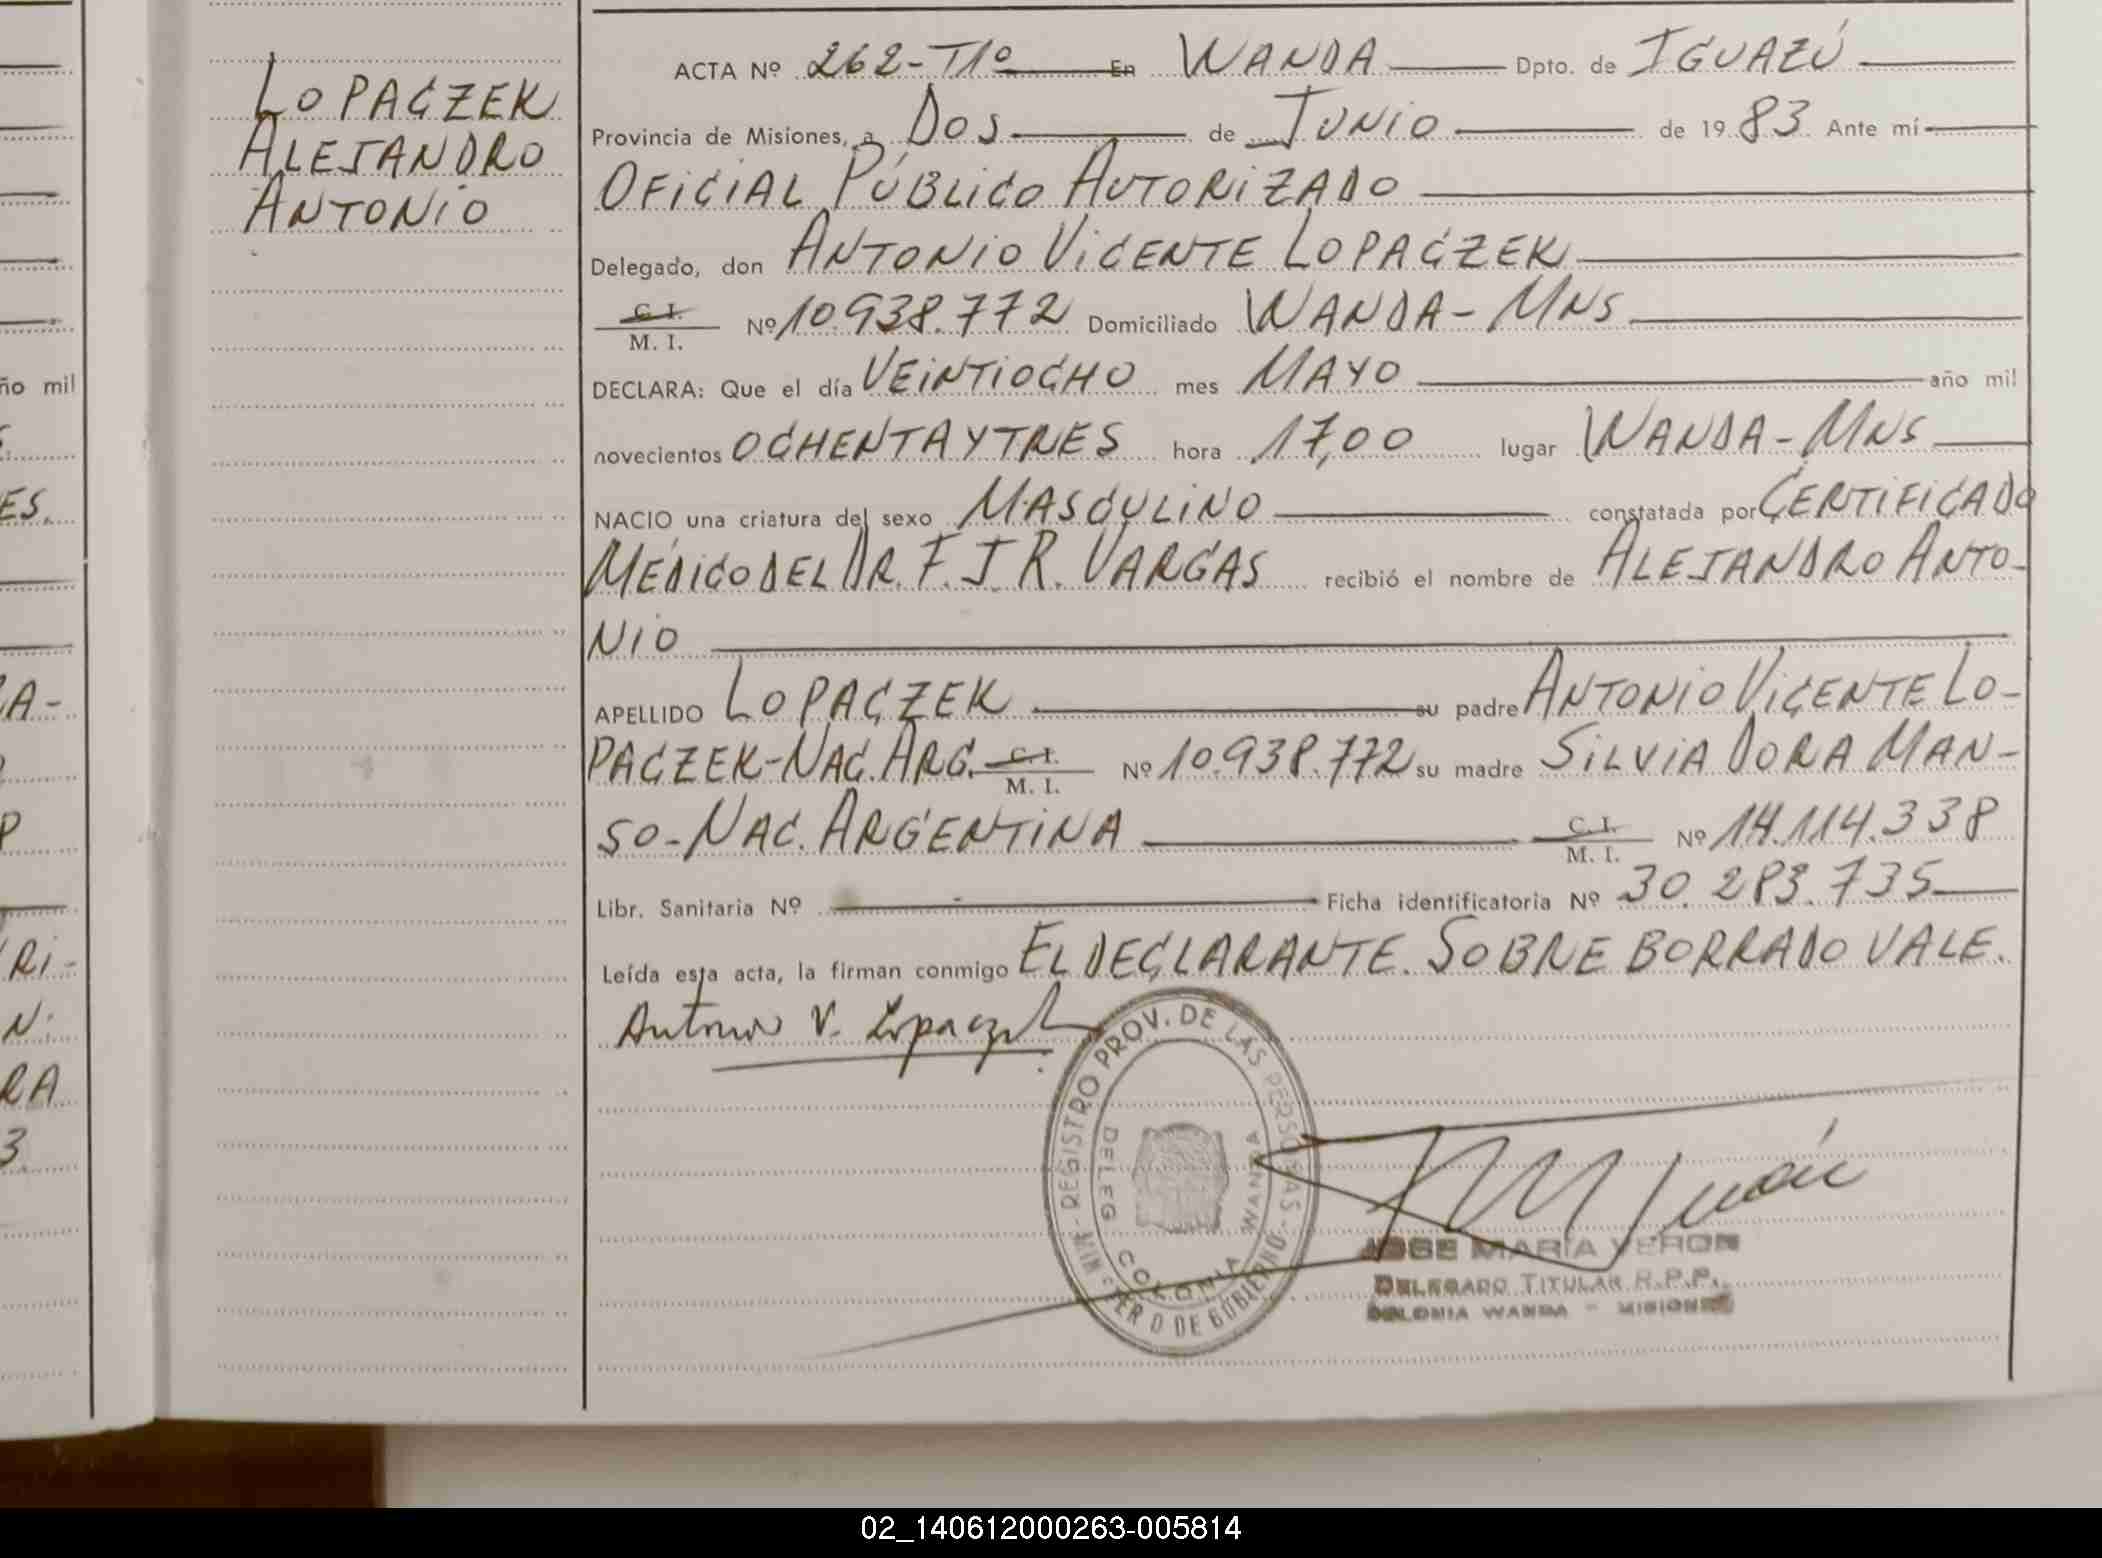 LOPACZEK
ALEJANDRO
ANTONIO
ACTA Nº 262-T1º En WANDA Dpto. de IGUAZÚ
Provincia de Misiones, a DOS de JUNIO de 1983 Ante mí
OFICIAL PÚBLICO AUTORIZADO
Delegado, don ANTONIO VICENTE LOPACZEK
C. I.
M. I. Nº 10.938.772 Domiciliado WANDA - MNS
DECLARA: Que el día VEINTIOCHO mes MAYO año mil
novecientos OCHENTA Y TRES hora 17,00 lugar WANDA - MNS
NACIO una criatura del sexo MASCULINO constatada por CERTIFICADO
MÉDICO DEL DR. F. J R. VARGAS recibió el nombre de ALEJANDRO ANTO-
NIO
APELLIDO LOPACZEK su padre ANTONIO VICENTE LO-
PACZEK - NAC. ARG. C. I.
M. I. Nº 10.938.772 su madre SILVIA DORA MAN-
SO - NAC. ARGENTINA C. I.
M. I. Nº 14.114.338
Libr. Sanitaria Nº Ficha identificatoria Nº 30.283.735
Leída esta acta, la firman conmigo EL DECLARANTE. SOBRE BORRADO VALE.
Antonio V. Lopaczek
REGISTRO PROV. DE LAS PERSONAS - MINISTERIO DE GOBIERNO
DELEG COLONIA WANDA
JOSE MARIA VERON
DELEGADO TITULAR R.P.P.
COLONIA WANDA - MISIONES
ño mil
ES.
A-
RI-
N.
RA
3
02_140612000263-005814